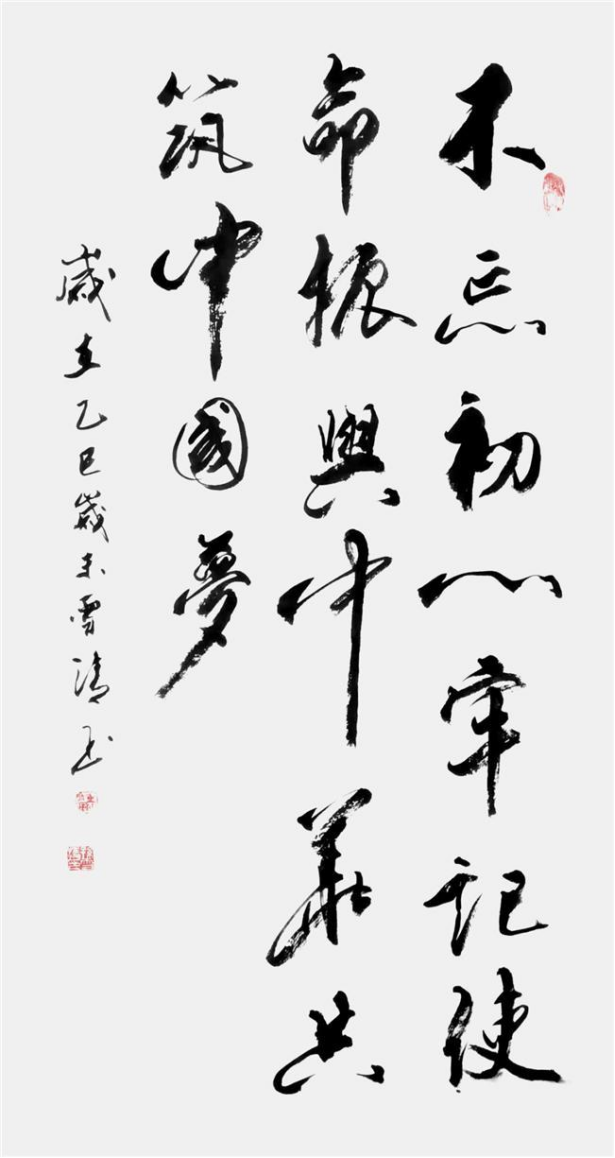 不忘初心牢記使
命振興中華共
筑中國夢
歲在乙巳歲末雪清书